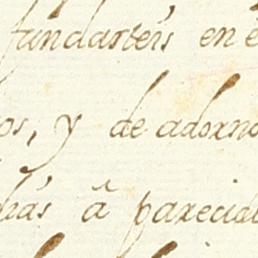 fundareis en e
os, y de adorno
has â parecido